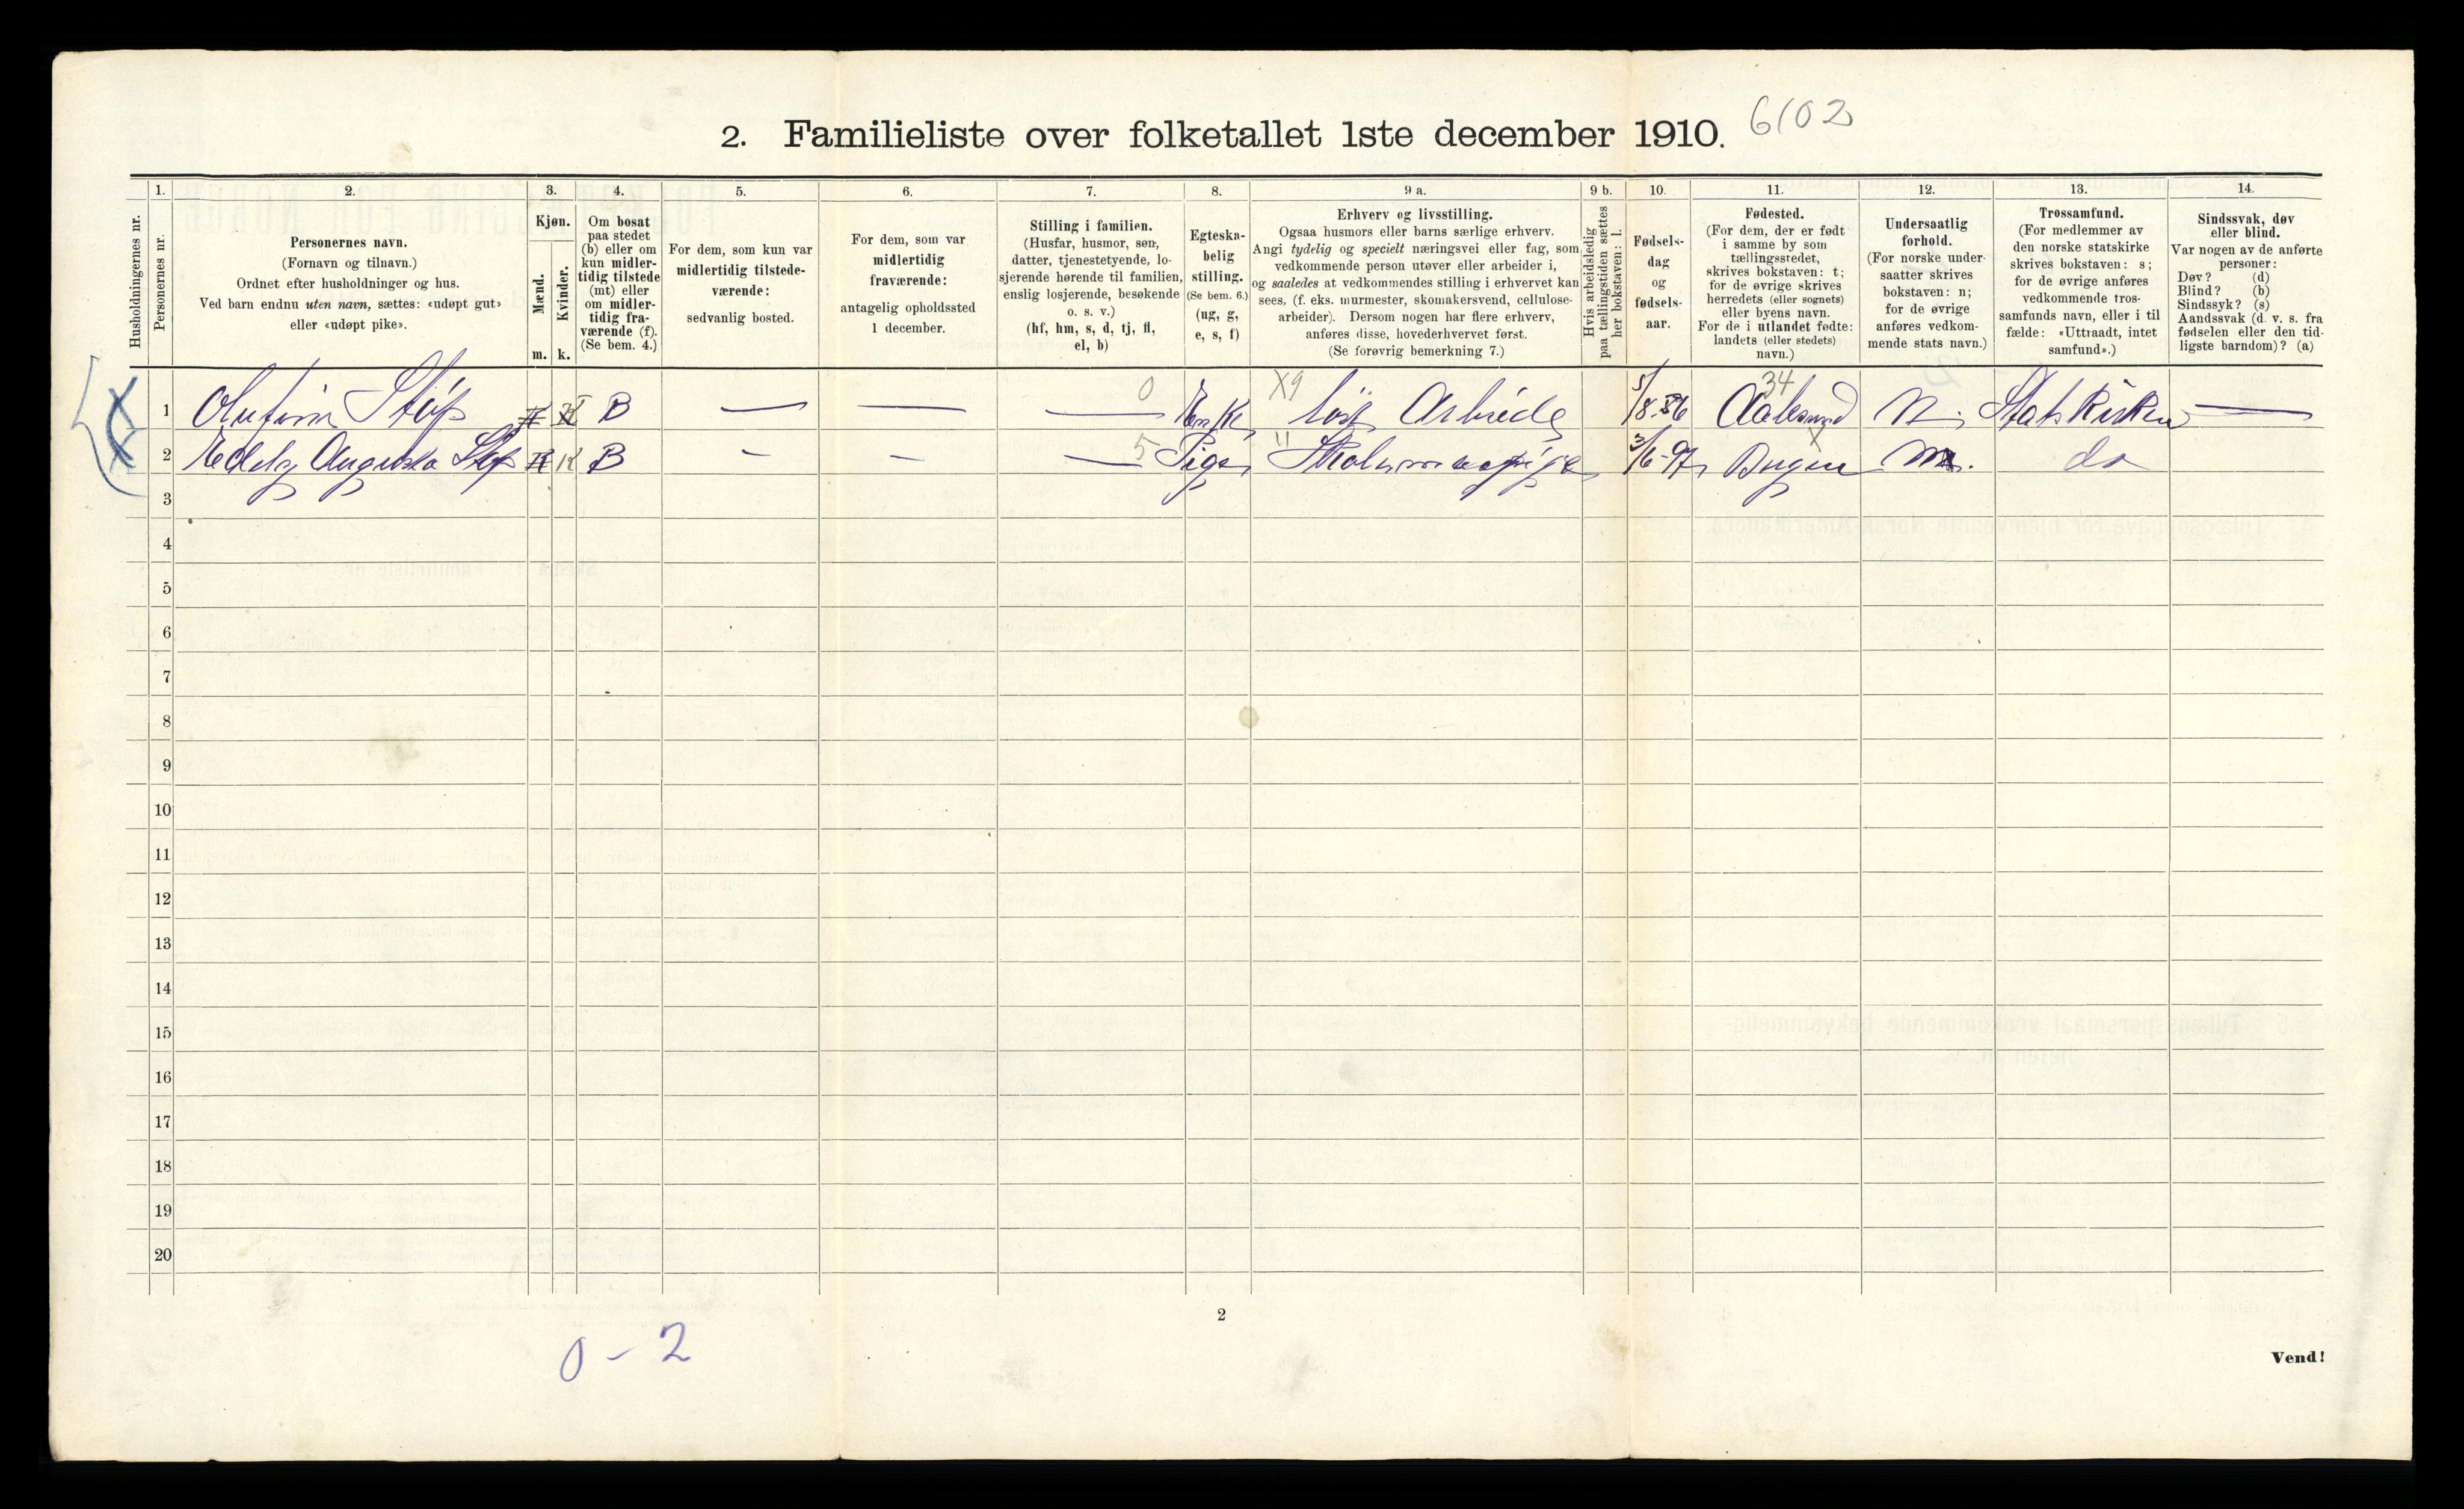 2. Familieliste over folketallet 1ste december 1910. 6102
1. 2. 3. 4. 5. 6. 7. 8. 9 a. 9 b. 10. 11. 12. 13. 14.
Husholdningernes nr.
Personernes nr.
Personernes navn.
(Fornavn og tilnavn.)
Ordnet efter husholdninger og hus.
Ved barn endnu uten navn, sættes: «udøpt gut»
eller «udøpt pike».
Kjøn.
Mænd.
Kvinder.
m. k.
Om bosat
paa stedet
(b) eller om
kun midler-
tidig tilstede
(mt) eller
om midler-
tidig fra-
værende (f).
(Se bem. 4.)
For dem, som kun var
midlertidig tilstede-
værende:
sedvanlig bosted.
For dem, som var
midlertidig
fraværende:
antagelig opholdssted
1 december.
Stilling i familien.
(Husfar, husmor, søn,
datter, tjenestetyende, lo-
sjerende hørende til familien,
enslig losjerende, besøkende
o. s. v.)
(hf, hm, s, d, tj, fl,
el, b)
Egteska-
belig
stilling.
(Se bem. 6.)
(ug, g,
e, s, f)
Erhverv og livsstilling.
Ogsaa husmors eller barns særlige erhverv.
Angi tydelig og specielt næringsvei eller fag, som
vedkommende person utøver eller arbeider i,
og saaledes at vedkommendes stilling i erhvervet kan
sees, (f. eks. murmester, skomakersvend, cellulose-
arbeider). Dersom nogen har flere erhverv,
anføres disse, hovederhvervet først.
(Se forøvrig bemerkning 7.)
Hvis arbeidsledig
paa tællingstiden sættes
her bokstaven: l.
Fødsels-
dag
og
fødsels-
aar.
Fødested.
(For dem, der er født
i samme by som
tællingsstedet,
skrives bokstaven: t;
for de øvrige skrives
herredets (eller sognets)
eller byens navn.
For de i utlandet fødte:
landets (eller stedets)
navn.)
Undersaatlig
forhold.
(For norske under-
saatter skrives
bokstaven: n;
for de øvrige
anføres vedkom-
mende stats navn.)
Trossamfund.
(For medlemmer av
den norske statskirke
skrives bokstaven: s;
for de øvrige anføres
vedkommende tros-
samfunds navn, eller i til
fælde: «Uttraadt, intet
samfund».)
Sindssvak, døv
eller blind.
Var nogen av de anførte
personer:
Døv? (d)
Blind? (b)
Sindssyk? (s)
Aandssvak (d. v. s. fra
fødselen eller den tid-
ligste barndom)? (a)
0 X9 34
1 Støp K B — — — Enke løst Arbeide 5/8-56 Aalesund N. Stats Kirken —
5 11 X
2 Augusta Støp K B - - — Pige 3/6-97 N. do
3
4
5
6
7
8
9
10
11
12
13
14
15
16
17
18
19
20
2
0 - 2
Vend!